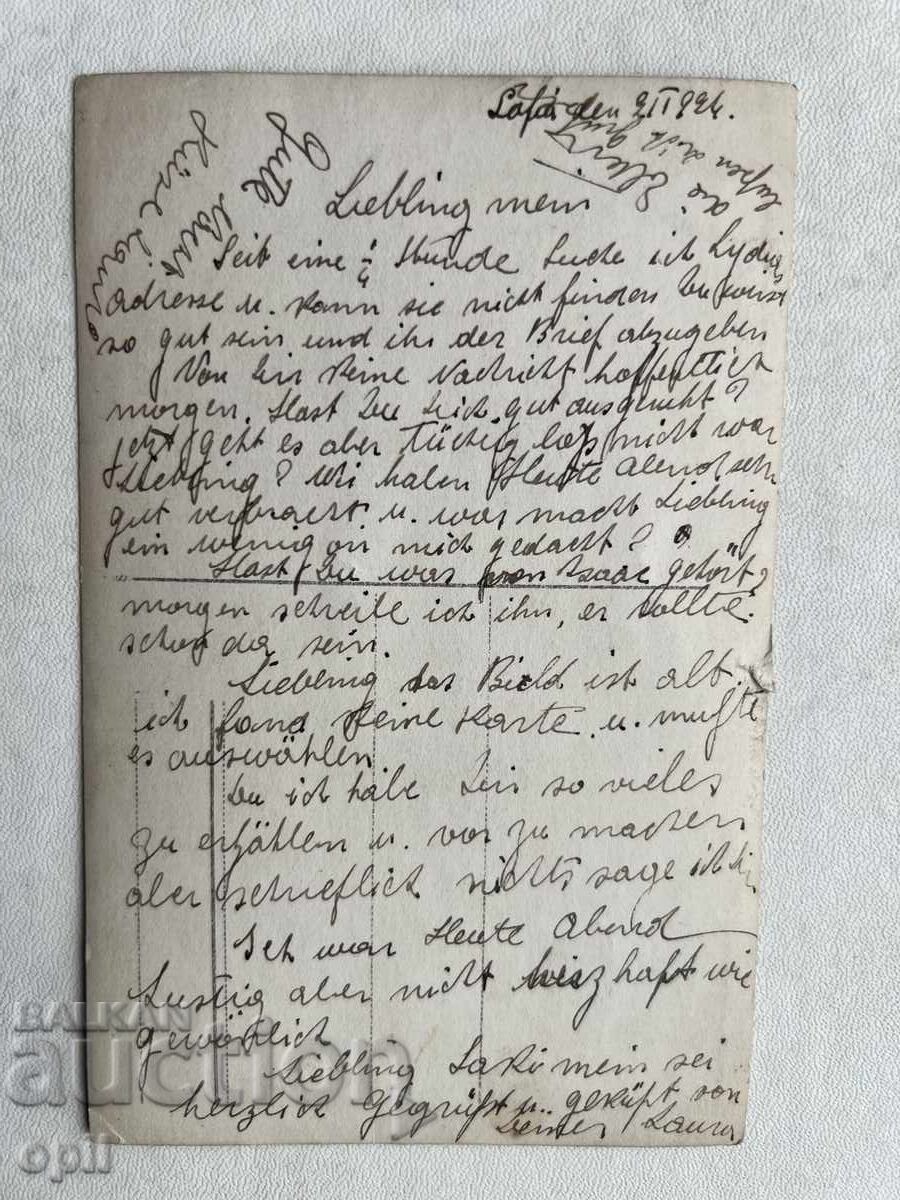 Sofia den 9 II 924.
die Eltern
lassen dich grüs
Gute Nacht
Küsse Laura
Liebling mein
Seit eine ½ Stunde Suche ich Lydias
adresse u. kann sie nicht finden Du wirst
so gut sein und ihr der Brief abzugeben
Von Dir keine Nachricht hoffentlich
morgen. Hast Du Dich gut ausgeruht?
jetzt geht es aber Tüchtig los, nicht war
Liebling? Wir haben Heute Abend sehr
gut verbracht u. was macht Liebling
ein wenig an mich gedacht?
Hast Du was von Isaac gehört?
morgen schreibe ich ihn, er sollte
schon da sein.
Liebling das Bield ist alt
ich fand keine Karte u. mußte
es auswählen
Du ich habe Dir so vieles
zu erzählen u. vor zu machen
aber schrieflich nichts sage ich dir
Ich war Heute Abend
Lustig aber nicht herzhaft wie
gewöhnlich
Liebling Saki mein sei
herzlich Gegrüßt u. geküßt von
Deiner Laura
BALKAN
auction
opil